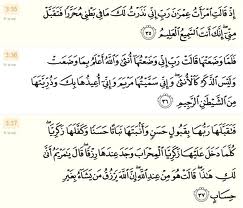 3:35
إِذْ قَالَتِ ٱمْرَأَتُ عِمْرَٰنَ رَبِّ إِنِّى نَذَرْتُ لَكَ مَا فِى بَطْنِى مُحَرَّرًا فَتَقَبَّلْ
مِنِّىٓ ۖ إِنَّكَ أَنتَ ٱلسَّمِيعُ ٱلْعَلِيمُ ٣٥
3:36
فَلَمَّا وَضَعَتْهَا قَالَتْ رَبِّ إِنِّى وَضَعْتُهَآ أُنثَىٰ وَٱللَّهُ أَعْلَمُ بِمَا وَضَعَتْ
وَلَيْسَ ٱلذَّكَرُ كَٱلْأُنثَىٰ ۖ وَإِنِّى سَمَّيْتُهَا مَرْيَمَ وَإِنِّىٓ أُعِيذُهَا بِكَ وَذُرِّيَّتَهَا
مِنَ ٱلشَّيْطَٰنِ ٱلرَّجِيمِ ٣٦
3:37
فَتَقَبَّلَهَا رَبُّهَا بِقَبُولٍ حَسَنٍ وَأَنۢبَتَهَا نَبَاتًا حَسَنًا وَكَفَّلَهَا زَكَرِيَّا ۖ
كُلَّمَا دَخَلَ عَلَيْهَا زَكَرِيَّا ٱلْمِحْرَابَ وَجَدَ عِندَهَا رِزْقًا ۖ قَالَ يَٰمَرْيَمُ أَنَّىٰ
لَكِ هَٰذَا ۖ قَالَتْ هُوَ مِنْ عِندِ ٱللَّهِ ۖ إِنَّ ٱللَّهَ يَرْزُقُ مَن يَشَآءُ بِغَيْرِ
حِسَابٍ ٣٧